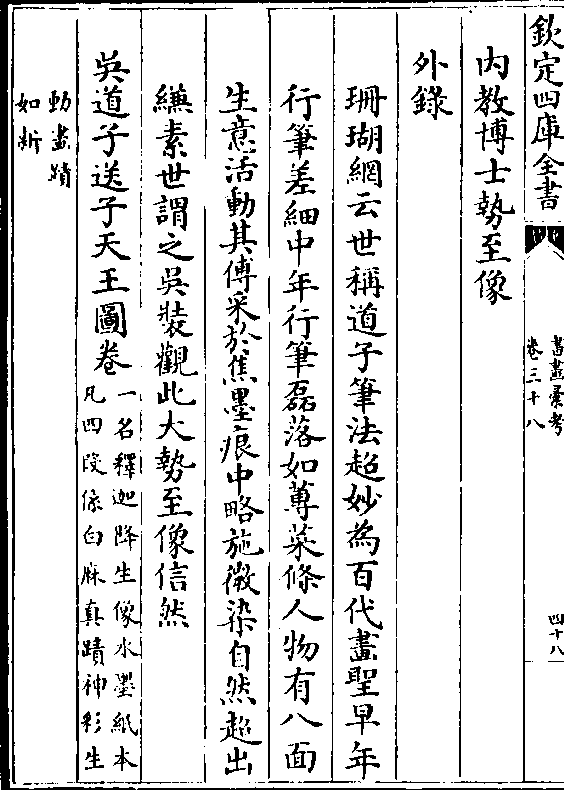 欽定四庫全書
書畫彙考
卷三十八
四十八
内教博士勢至像
外錄
珊瑚網云世稱道子筆法超妙為百代畫聖早年
行筆差細中年行筆磊落如蓴菜條人物有八面
生意活動其傅采於焦墨痕中略施微染自然超出
縑素世謂之吳裝觀此大勢至像信然
吳道子送子天王圖卷
一名釋迦降生像水墨紙本
凡四段係白麻真蹟神彩生
動畫蹟
如新